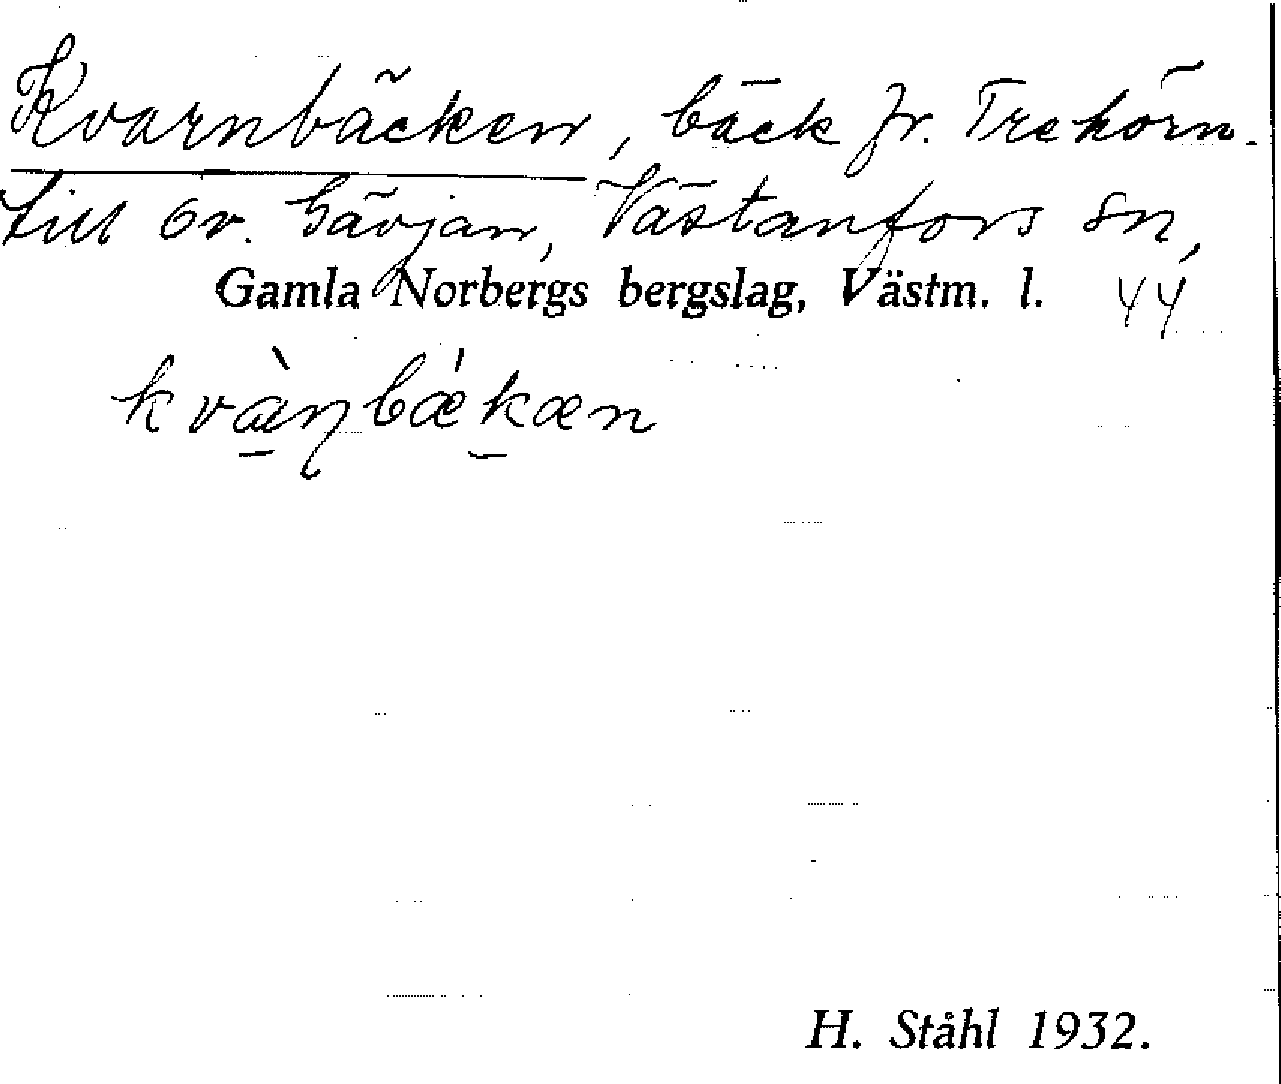 Kvarnbäcken, bäck fr. Trehörn-
till Öv. Gävjan, Västanfors sn,
Gamla Norbergs bergslag, Västm. l. 44
kvàɳbǽkæn
H. Ståhl 1932.